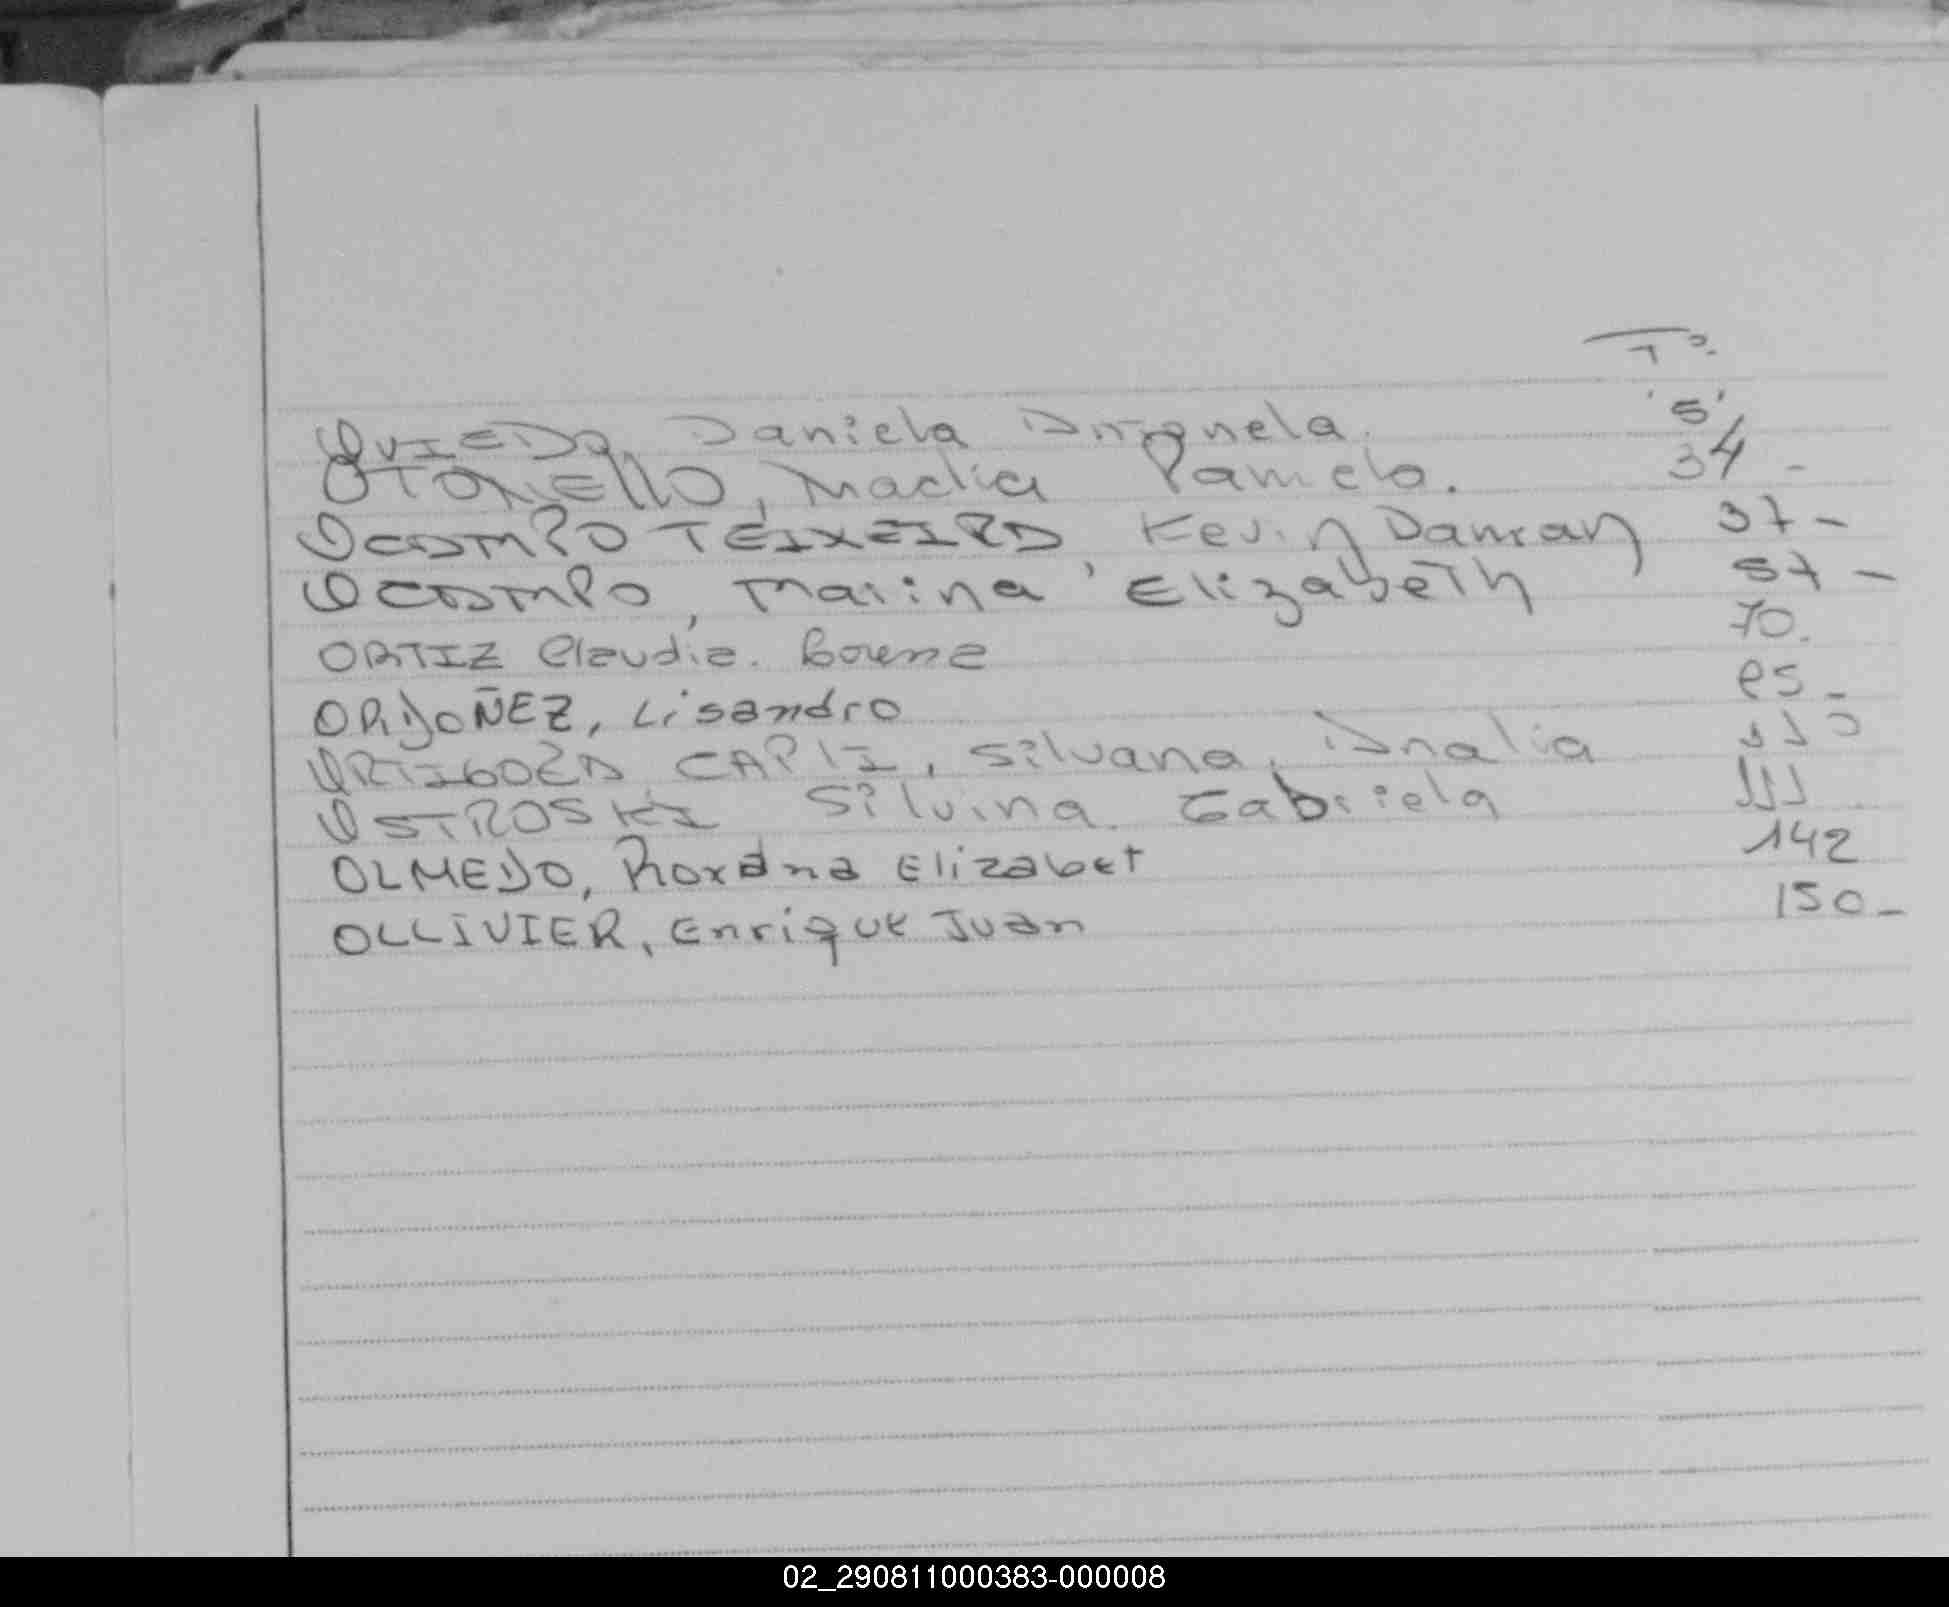 Fº.
OVIEDO Daniela Antonela. 5
OTONELLO, Maclia Pamela. 34 -
OCAMPO TEIXEIRA Kevin Damian 37 -
OCAMPO, Marina Elizabeth 57 -
ORTIZ Claudia. 70.
ORDOÑEZ, Lisandro 85 -
ORTIGOZA CAPLI, Silvana Analia 110
OSTROSKI Silvina Gabriela 111
OLMEDO, Roxana Elizabet 142
OLLIVIER, Enrique Juan 150 -
02_290811000383-000008